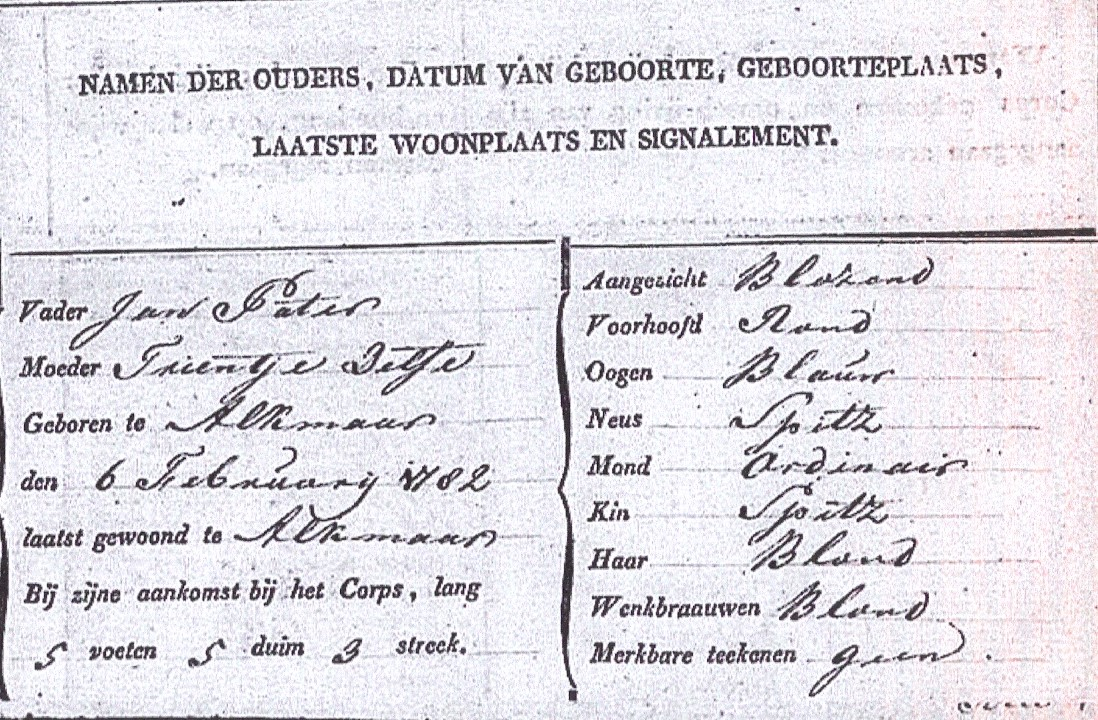 NAMEN DER OUDERS, DATUM VAN GEBOORTE, GEBOORTEPLAATS,
LAATSTE WOONPLAATS EN SIGNALEMENT.
Vader Jan Pater
Moeder Trientje
Geboren te Alkmaar
den 6 February 1782
laatst gewoond te Alkmaar
Bij zijne aankomst bij het Corps, lang
5 voeten 5 duim 3 streek.
Aangezicht Blozend
Voorhoofd Rond
Oogen Blauw
Neus Spitz
Mond Ordinair
Kin Spitz
Haar Blond
Wenkbraauwen Blond
Merkbare teekenen geen.